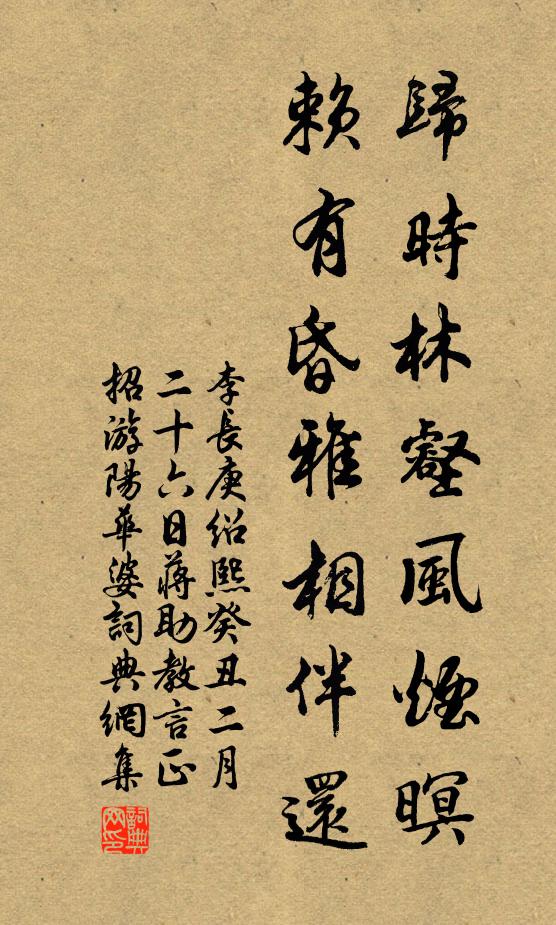 歸時林壑風煙暝
賴有昏雅相伴還
李長庚紹熙癸丑二月
二十六日蔣助教言正
招游陽華婆詞典網集
詞典網印